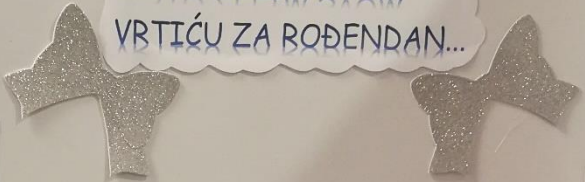 VRTIĆU ZA ROĐENDAN...